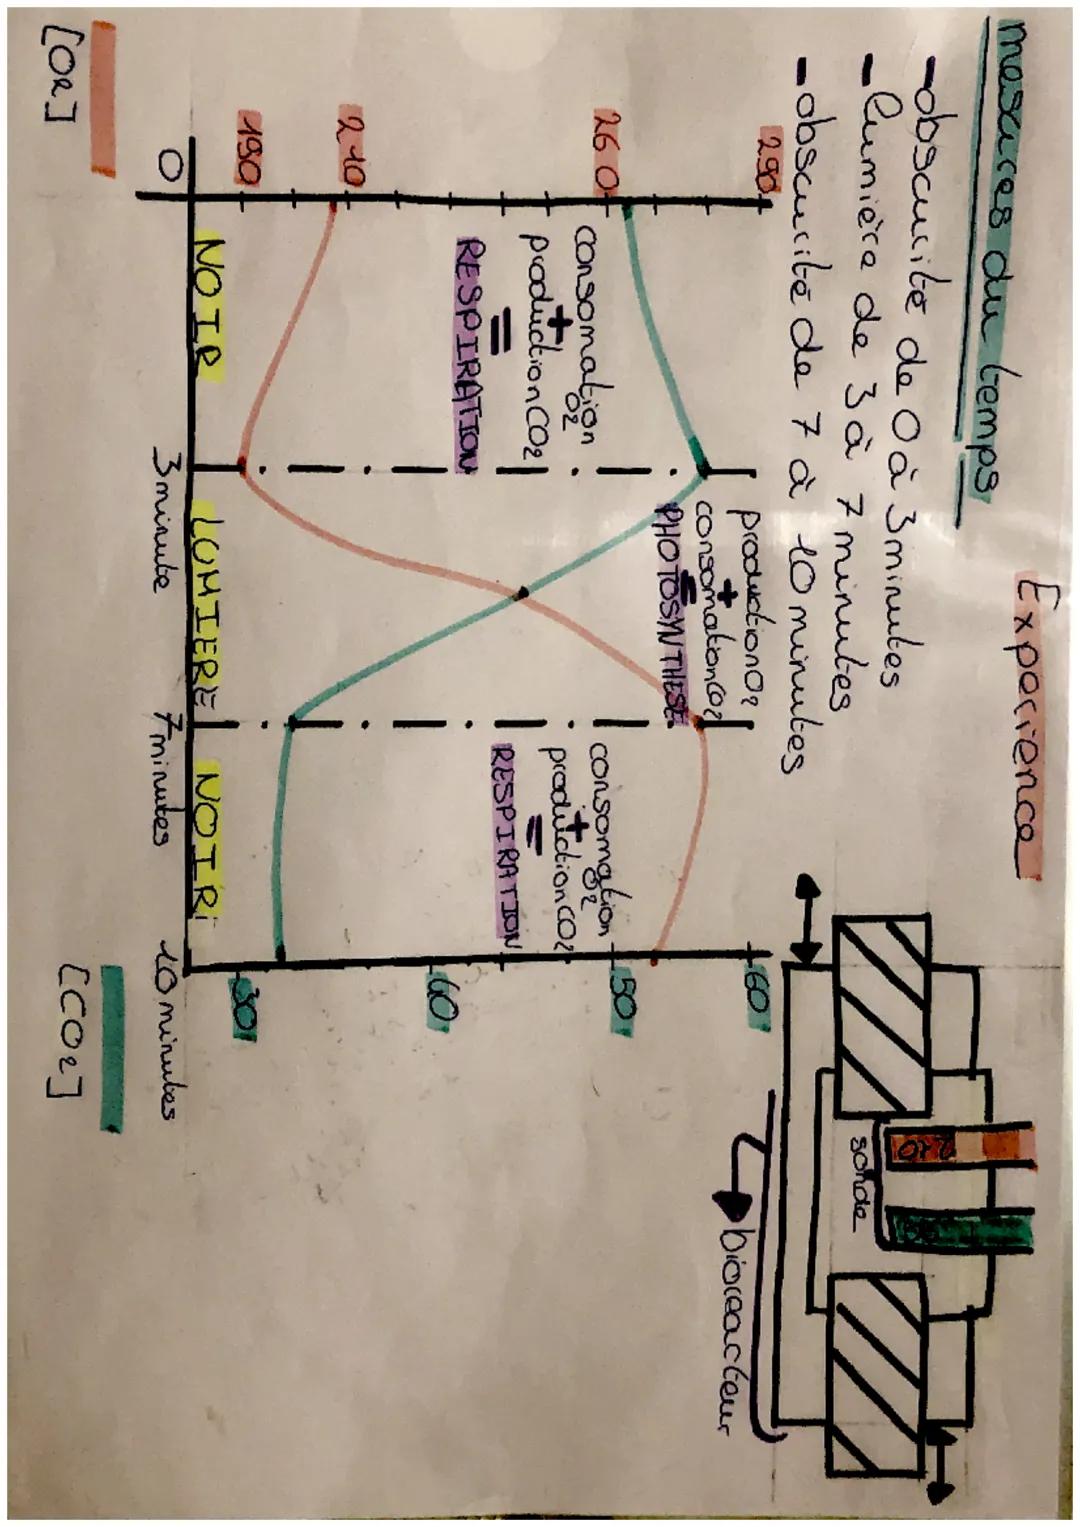 Expérience
mesures du temps
- obscurité de 0 à 3 minutes
- lumière de 3 à 7 minutes
- obscurité de 7 à 10 minutes
sonde
bioreacteur
290
260
210
190
0
[O2]
consomation
O2
+
production CO2
=
RESPIRATION
NOIR
3 minute
production O2
+
consomation CO2
=
PHOTOSYNTHESE
LUMIERE
7 minutes
consomation
O2
+
production CO2
=
RESPIRATION
NOIR
10 minutes
60
50
40
30
[CO2]